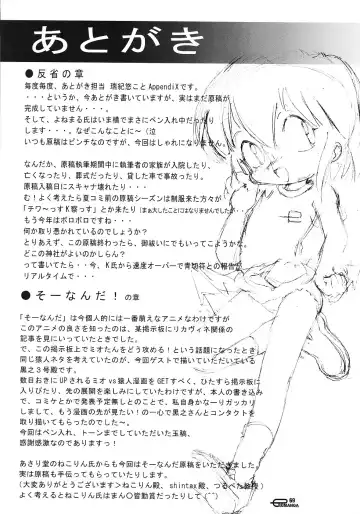 あとがき
●反省の章
毎度毎度、あとがき担当 瑞紀悠ことAppendiXです。
・・・というか、今あとがき書いていますが、実はまだ原稿が
完成していません・・・。
そして、よねまる氏はいま横でまさにペン入れ中だったり
します・・・。なぜこんなことに～(泣
いつも原稿はピンチなのですが、今回はしゃれになりません。
なんだか、原稿執筆期間中に執筆者の家族が入院したり、
亡くなったり、葬式だったり、貸した車で事故ったり、
原稿入稿日にスキャナ壊れたり・・・
むぅ！よく考えたら夏コミ前の原稿シーズンは制服来た方々が
「テワ～っすK察っす」とか来たり(まぁ大したことにはなりませんでしたが・・・
もう今年はボロボロですね・・・
何か取り憑かれているのでしょうか？
とりあえず、この原稿終わったら、御祓いにでもいってこようかな。
どこの神社がよいのかしらん？
って書いてたら・・今、K氏から速度オーバーで青切符との報告が
リアルタイムで・・・
●そーなんだ！の章
「そーなんだ」は今個人的には一番萌えなアニメなわけですが
このアニメの良さを知ったのは、某掲示板にリカヴィネ関係の
記事を見にいってたときでした。
で、この掲示板上でミオたんをどう攻める！という話題になったとき、
同じ猿人ネタを執筆していたのが、今回ゲストで描いていただいている
黒之３号殿です。
数日おきにUPされるミオvs猿人漫画をGETすべく、ひたすら掲示板に
入りびたり、先の展開を楽しみにしていたわけですが、本人の書き込み
で、コミケとかで発表予定無しとのことで、私自身かな～りガッカリ
しまして、もう漫画の先が見たい！の一心で黒之さんとコンタクトを
取り描いてもらったのでした～。
今回はペン入れ、トーンまでしていただいた玉稿、
感謝感激なのでありますっ！
あさり堂のねこりん氏からも今回はそーなんだ原稿をいただきました。
実は原稿も手伝ってもらったりしています・・・。
(大変ありがとうございます>ねこりん殿、shintax殿、つるぺた
よく考えるとねこりん氏はまん○皆勤賞だったりして(^^)